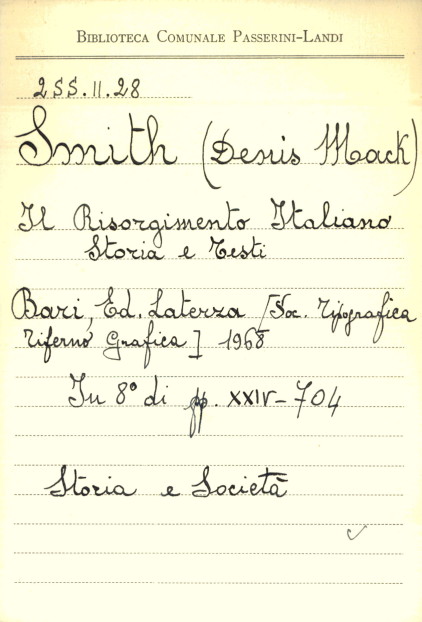 BIBLIOTECA COMUNALE PASSERINI-LANDI
2SS.II.28
Smith (Denis Mack)
Il Risorgimento Italiano
Storia e Testi
Bari, Ed. Laterza [Soc. Tipografica
Tiferno Grafica] 1968
In 8° di pp. XXIV-704
Storia e Società